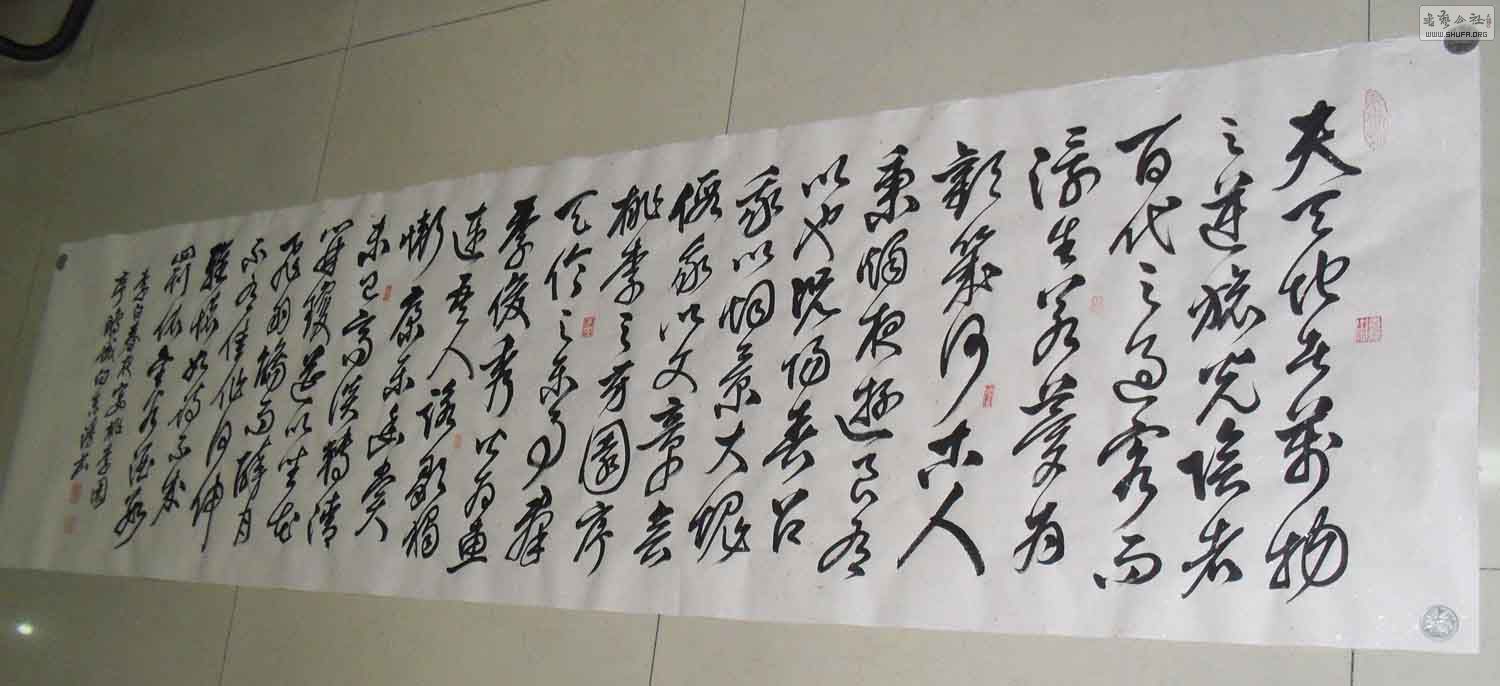 夫天地者萬物
之逆旅光陰者
百代之過客而
浮生若夢為
歡幾何古人
秉燭夜遊良有
以也況陽春召
我以烟景大塊
假我以文章会
桃李之芳園序
天倫之樂事群
季俊秀皆為惠
連吾人詠歌獨
慚康樂幽賞
未已高談轉清
開瓊筵以坐花
飛羽觴而醉月
不有佳作何伸
雅懷如詩不成
罰依金谷酒數
李白春夜宴桃李園
書藝公社
WWW.SHUFA.ORG